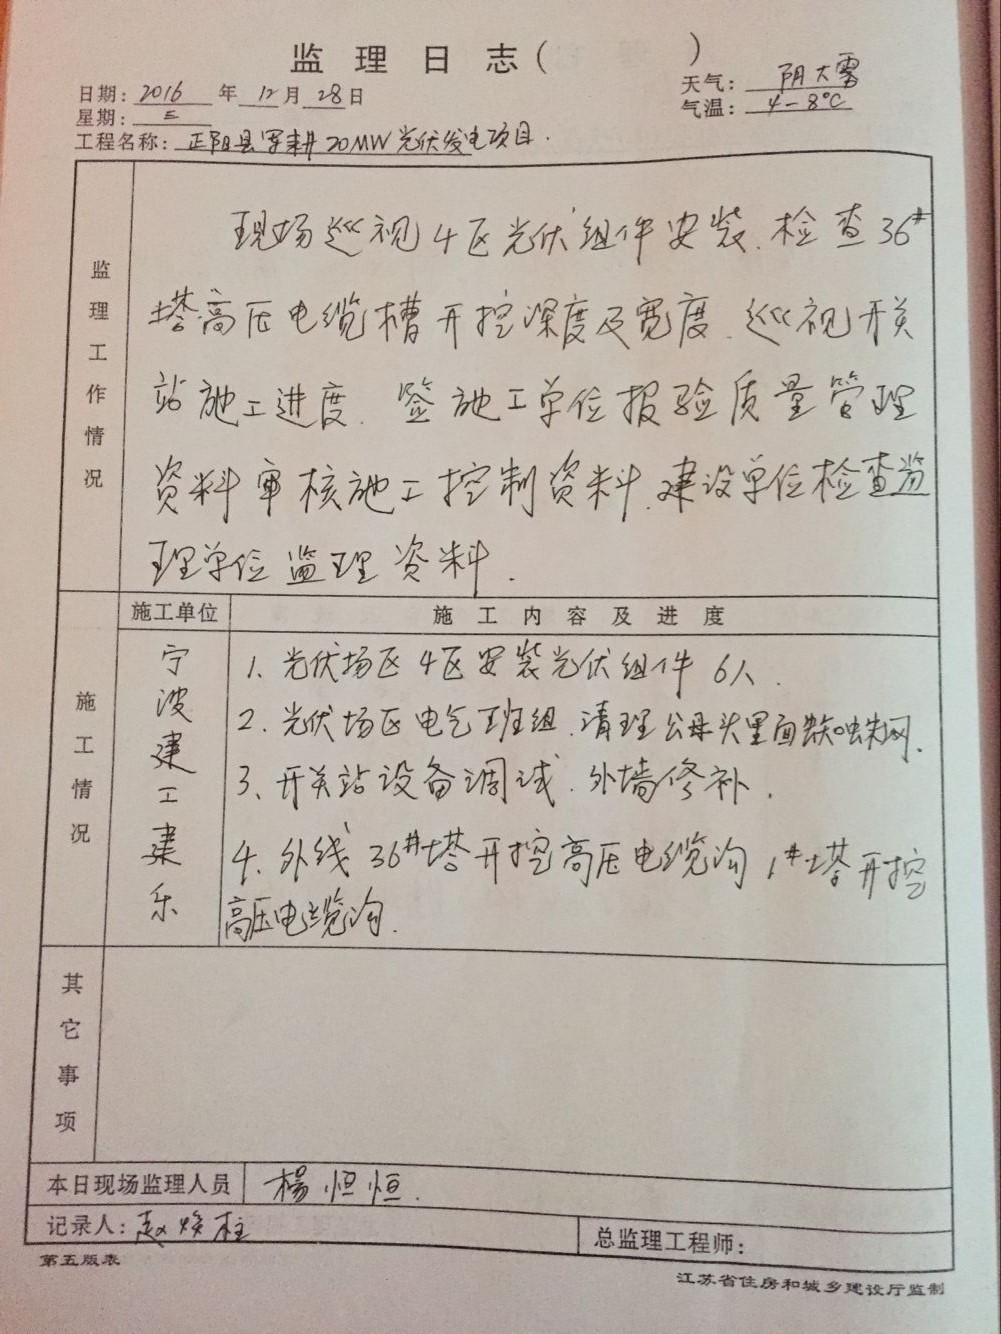 监理日志(　　)
日期: 2016 年 12 月 28 日
天气: 阴大雾
星期: 三
气温: 4-8℃
工程名称: 正阳县军耕20MW光伏发电项目.
监理工作情况
现场巡视4区光伏组件安装.检查36#
塔高压电缆槽开挖深度及宽度.巡视开关
站施工进度.签施工单位报验质量管理
资料审核施工控制资料.建设单位检查监
理单位监理资料.
施工情况
施工单位
施工内容及进度
宁波建工建乐
1、光伏场区4区安装光伏组件6人.
2、光伏场区电气班组.清理公母头里面蜘蛛网.
3、开关站设备调试.外墙修补.
4、外线36#塔开挖高压电缆沟1#塔开挖
高压电缆沟.
其它事项
本日现场监理人员 楊恒恒.
记录人: 赵焕柱
总监理工程师:
第五版表
江苏省住房和城乡建设厅监制